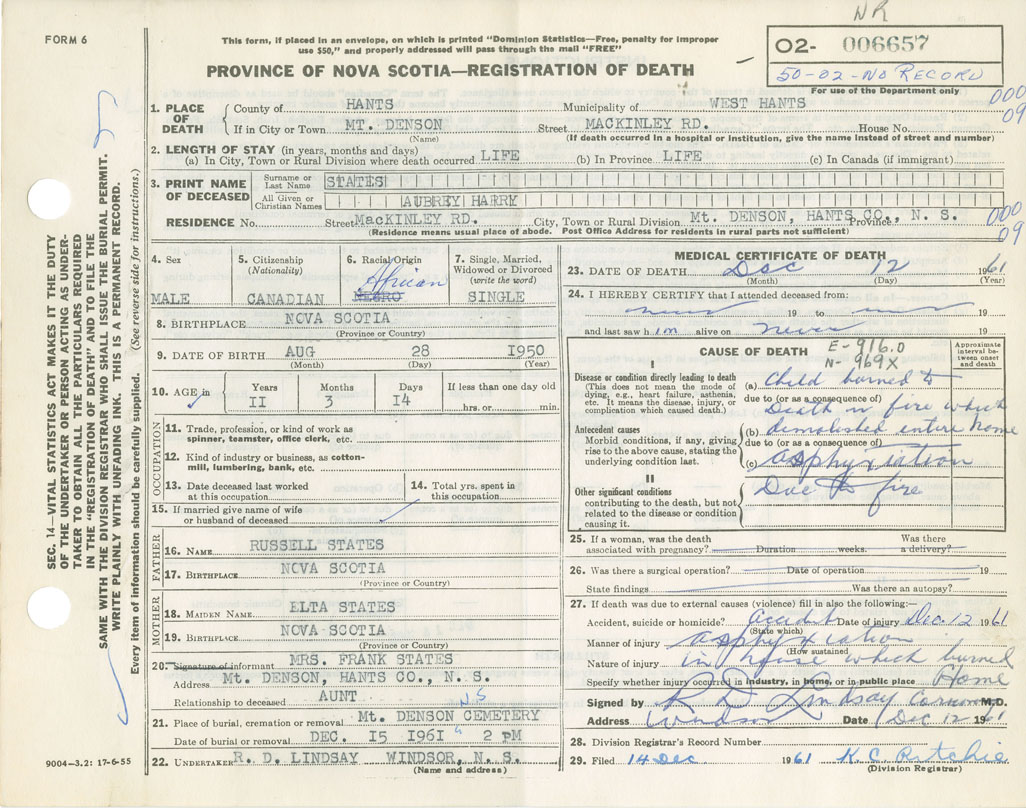 NR
FORM 6
This form, if placed in an envelope, on which is printed "Dominion Statistics—Free, penalty for improper
use $50," and properly addressed will pass through the mail "FREE"
PROVINCE OF NOVA SCOTIA—REGISTRATION OF DEATH
02- 006657
50-02-NO RECORD
For use of the Department only
000
09
1. PLACE OF DEATH
County of HANTS Municipality of WEST HANTS
If in City or Town MT. DENSON Street MACKINLEY RD. House No.
(Name) (If death occurred in a hospital or institution, give the name instead of street and number)
2. LENGTH OF STAY (in years, months and days)
(a) In City, Town or Rural Division where death occurred LIFE (b) In Province LIFE (c) In Canada (if immigrant)
3. PRINT NAME OF DECEASED
Surname or Last Name STATES
All Given or Christian Names AUBREY HARRY
RESIDENCE No. Street MacKINLEY RD. City, Town or Rural Division Mt. DENSON, HANTS CO., N. S. Province?
(Residence means usual place of abode. Post Office Address for residents in rural parts not sufficient)
000
09
4. Sex
MALE
5. Citizenship
(Nationality)
CANADIAN
6. Racial Origin
African
NEGRO
7. Single, Married,
Widowed or Divorced
(write the word)
SINGLE
8. BIRTHPLACE NOVA SCOTIA
(Province or Country)
9. DATE OF BIRTH AUG 28 1950
(Month) (Day) (Year)
10. AGE in
Years Months Days If less than one day old
II 3 I4 hrs. or min.
OCCUPATION
11. Trade, profession, or kind of work as
spinner, teamster, office clerk, etc.
12. Kind of industry or business, as cotton-
mill, lumbering, bank, etc.
13. Date deceased last worked
at this occupation
14. Total yrs. spent in
this occupation
15. If married give name of wife
or husband of deceased
FATHER
16. NAME RUSSELL STATES
17. BIRTHPLACE NOVA SCOTIA
(Province or Country)
MOTHER
18. MAIDEN NAME ELTA STATES
19. BIRTHPLACE NOVA SCOTIA
(Province or Country)
20. Signature of informant MRS. FRANK STATES
Address Mt. DENSON, HANTS CO., N. S.
Relationship to deceased AUNT
N.S
21. Place of burial, cremation or removal Mt. DENSON CEMETERY
Date of burial or removal DEC. I5 I96I 2 PM
22. UNDERTAKER R. D. LINDSAY WINDSOR, N. S.
(Name and address)
MEDICAL CERTIFICATE OF DEATH
23. DATE OF DEATH Dec 12 1961
(Month) (Day) (Year)
24. I HEREBY CERTIFY that I attended deceased from:
never 19 to never 19
and last saw him alive on never 19
CAUSE OF DEATH
E-916.0
N-969X
Approximate
interval be-
tween onset
and death
I
Disease or condition directly leading to death
(This does not mean the mode of
dying, e.g., heart failure, asthenia,
etc. It means the disease, injury, or
complication which caused death.)
(a) Child burned to
due to (or as a consequence of)
Death in fire which
Antecedent causes
Morbid conditions, if any, giving
rise to the above cause, stating the
underlying condition last.
(b) demolished entire home
due to (or as a consequence of)
(c) Asphyxiation
II
Other significant conditions
contributing to the death, but not
related to the disease or condition
causing it.
Due to fire
25. If a woman, was the death
associated with pregnancy? Duration weeks. Was there
a delivery?
26. Was there a surgical operation? Date of operation 19
State findings Was there an autopsy?
27. If death was due to external causes (violence) fill in also the following:
Accident, suicide or homicide? accident Date of injury Dec. 12 1961
(State which)
Manner of injury asphyxiation
(How sustained)
Nature of injury in house which burned
Specify whether injury occurred in industry, in home, or in public place Home
Signed by R D Lindsay Coroner M.D.
Address Windsor Date Dec 12 1961
28. Division Registrar's Record Number
29. Filed 14 Dec 1961 K. C. Ritchie
(Division Registrar)
SEC. 14—VITAL STATISTICS ACT MAKES IT THE DUTY
OF THE UNDERTAKER OR PERSON ACTING AS UNDER-
TAKER TO OBTAIN ALL THE PARTICULARS REQUIRED
IN THE "REGISTRATION OF DEATH" AND TO FILE THE
SAME WITH THE DIVISION REGISTRAR WHO SHALL ISSUE THE BURIAL PERMIT.
WRITE PLAINLY WITH UNFADING INK. THIS IS A PERMANENT RECORD.
Every item of information should be carefully supplied. (See reverse side for instructions.)
9004-3.2: 17-6-55